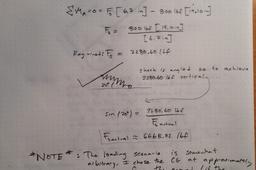 ΣM_A = 0 = F_S [6.7 in] - 800 lbf [19.10 in]
F_S = 800 lbf [19.10 in] / [6.7 in]
Required: F_S = 2280.60 lbf
shock is angled so to achieve
2280.60 lbf vertical,
20°
sin(20°) = 2280.60 lbf / F_S actual
F_S actual = 6668.02 lbf
*NOTE*: The loading scenario is somewhat
arbitrary. I chose the CG at approximately